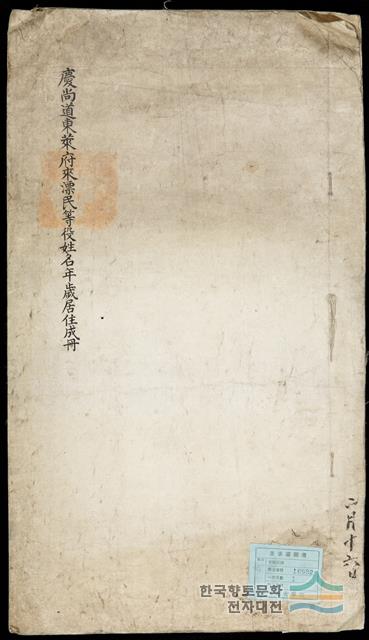 慶尚道東萊府來漂民等役姓名年歲居住成冊
六月十六日
한국향토문화
전자대전